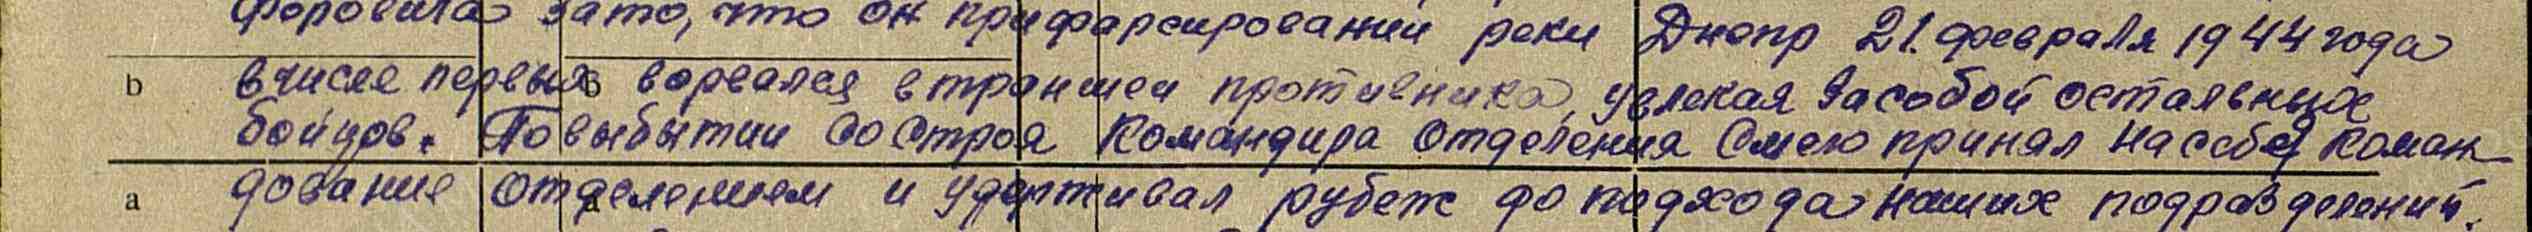 форовича зато, что он при фарсировании реки Днепр 21. февраля 1944 года
b в числе первых в ворвался в траншеи противника, увлекая за собой остальных
бойцов. По выбытии со строя командира отделения смело принял на себя коман-
a дование отделением a и удерживал рубеж до подхода наших подразделений.